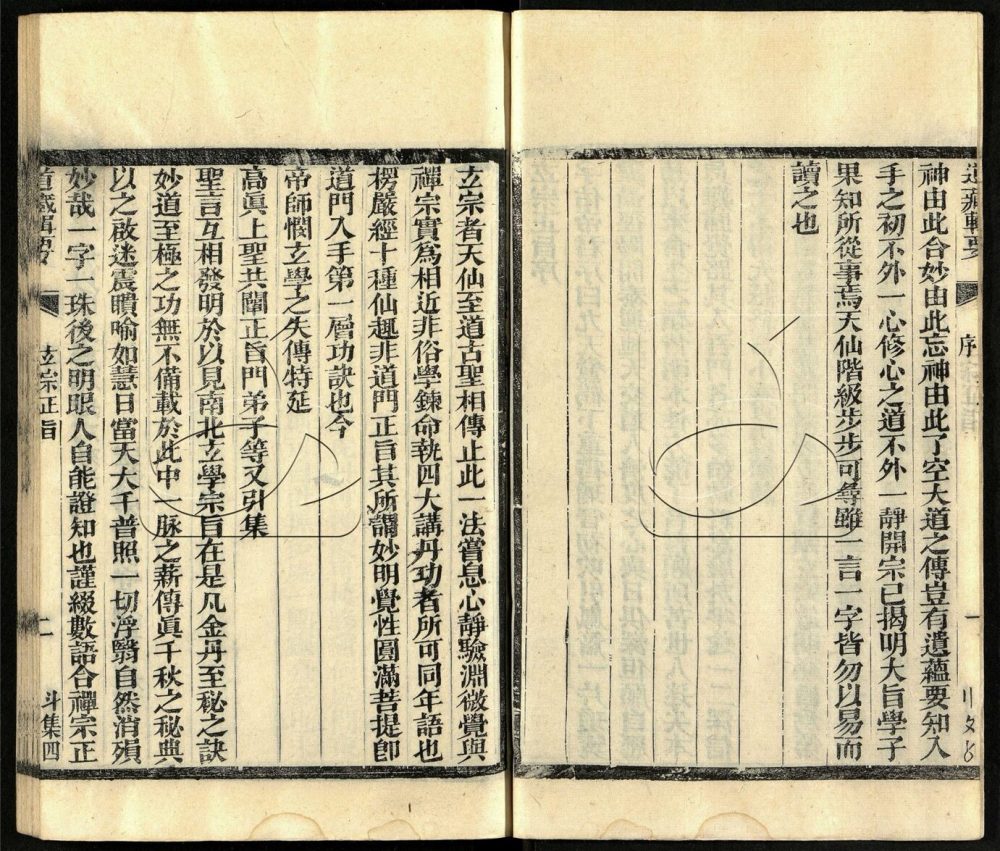 道藏輯要 序 一
神由此合妙由此忘神由此了空大道之傳豈有遺蘊要知入
手之初不外一心修心之道不外一靜開宗已揭明大旨學子
果知所從事焉天仙階級步步可尋雖一言一字皆勿以易而
讀之也
玄宗者天仙至道古聖相傳止此一法嘗息心靜驗淵微覺與
禪宗實爲相近非俗學鍊命執四大講丹功者所可同年語也
楞嚴經十種仙趣非道門正旨其所謂妙明覺性圓滿菩提卽
道門入手第一層功訣也今
帝師憫玄學之失傳特延
高眞上聖共闡正旨門弟子等又引集
聖言互相發明於以見南北玄學宗旨在是凡金丹至秘之訣
妙道至極之功無不備載於此中一脉之薪傳眞千秋之秘典
以之啟迷震聵喻如慧日當天大千普照一切浮翳自然消殞
妙哉一字一珠後之明眼人自能證知也謹綴數語合禪宗正
道藏輯要 玄宗正旨 二 斗集四